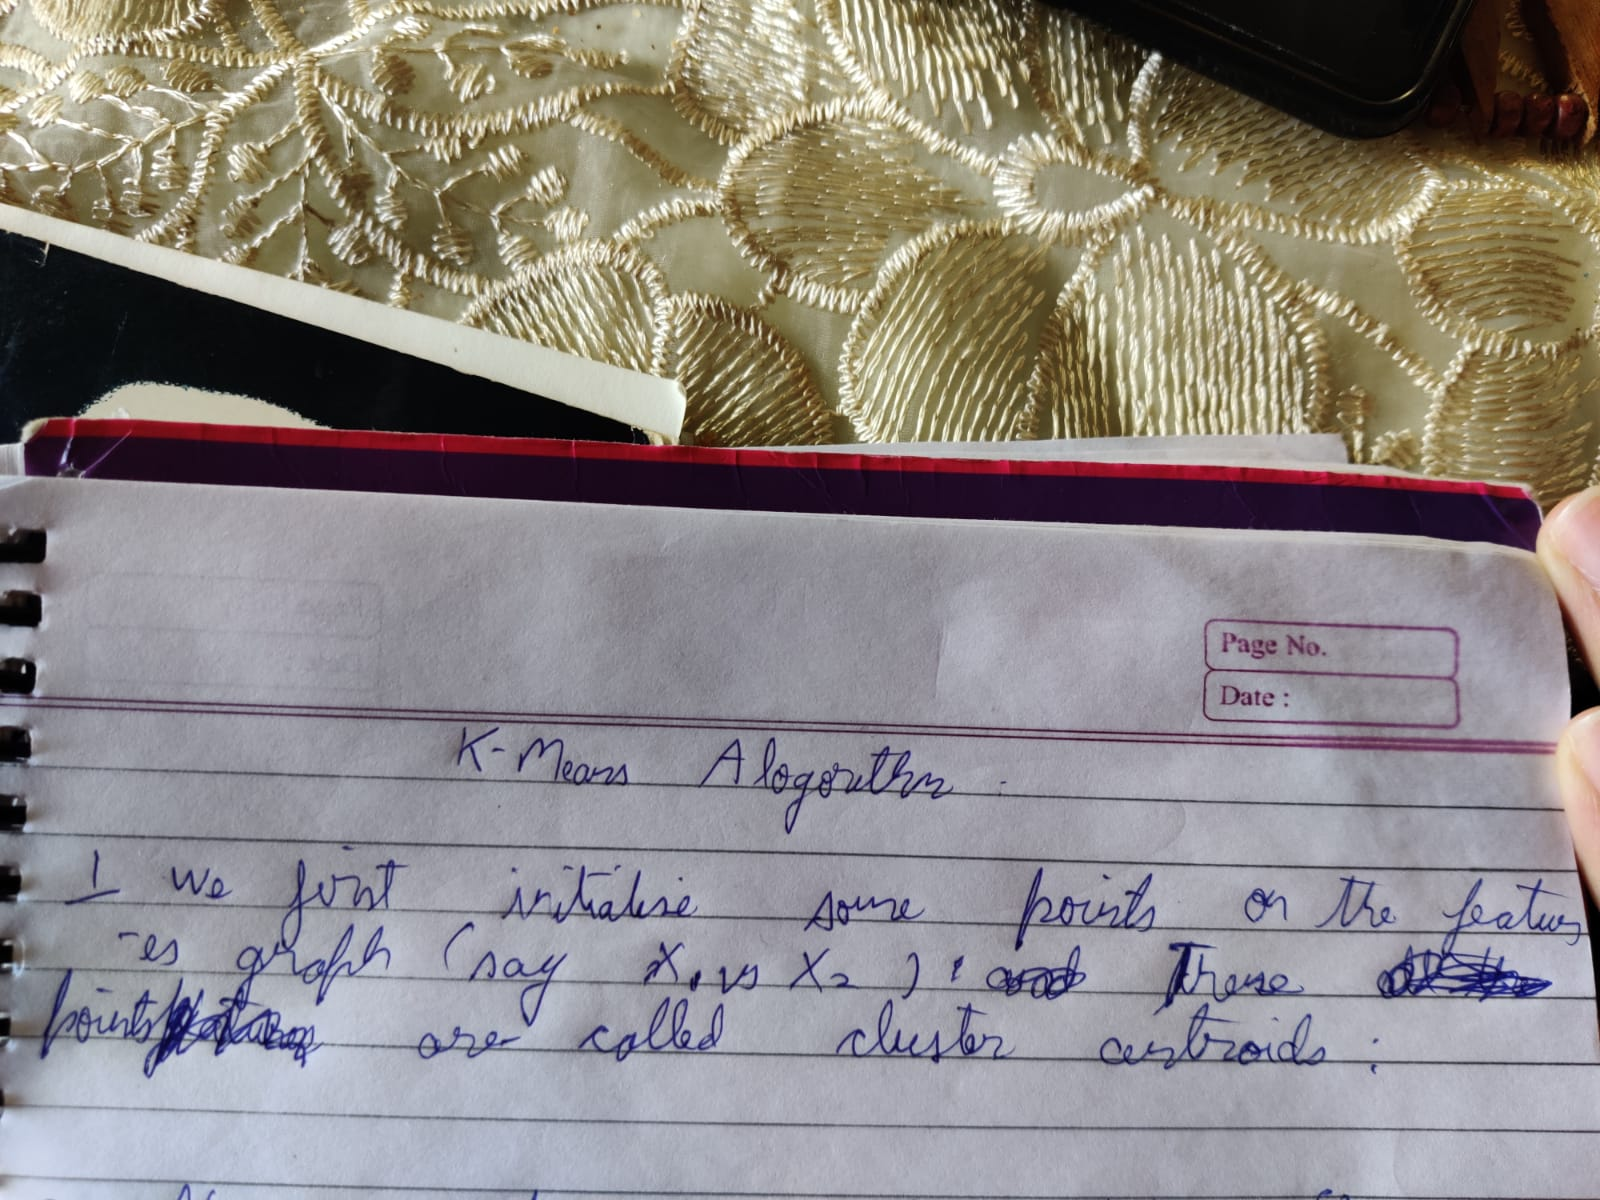 Page No.
Date :
K-Means Alogorithm :
1 we first initialise some points on the featur
-es graph (say X1 vs X2) : and These
points are called cluster centroids :